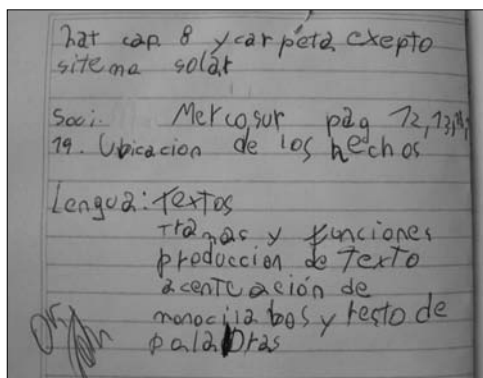 nat cap 8 y carpeta exepto
sitema solar
Soci. Mercosur pag 12, 13,
19. Ubicacion de los hechos
Lengua: Textos
Tramas y funciones
produccion de Texto
acentuación de
monocilabos y resto de
palabras